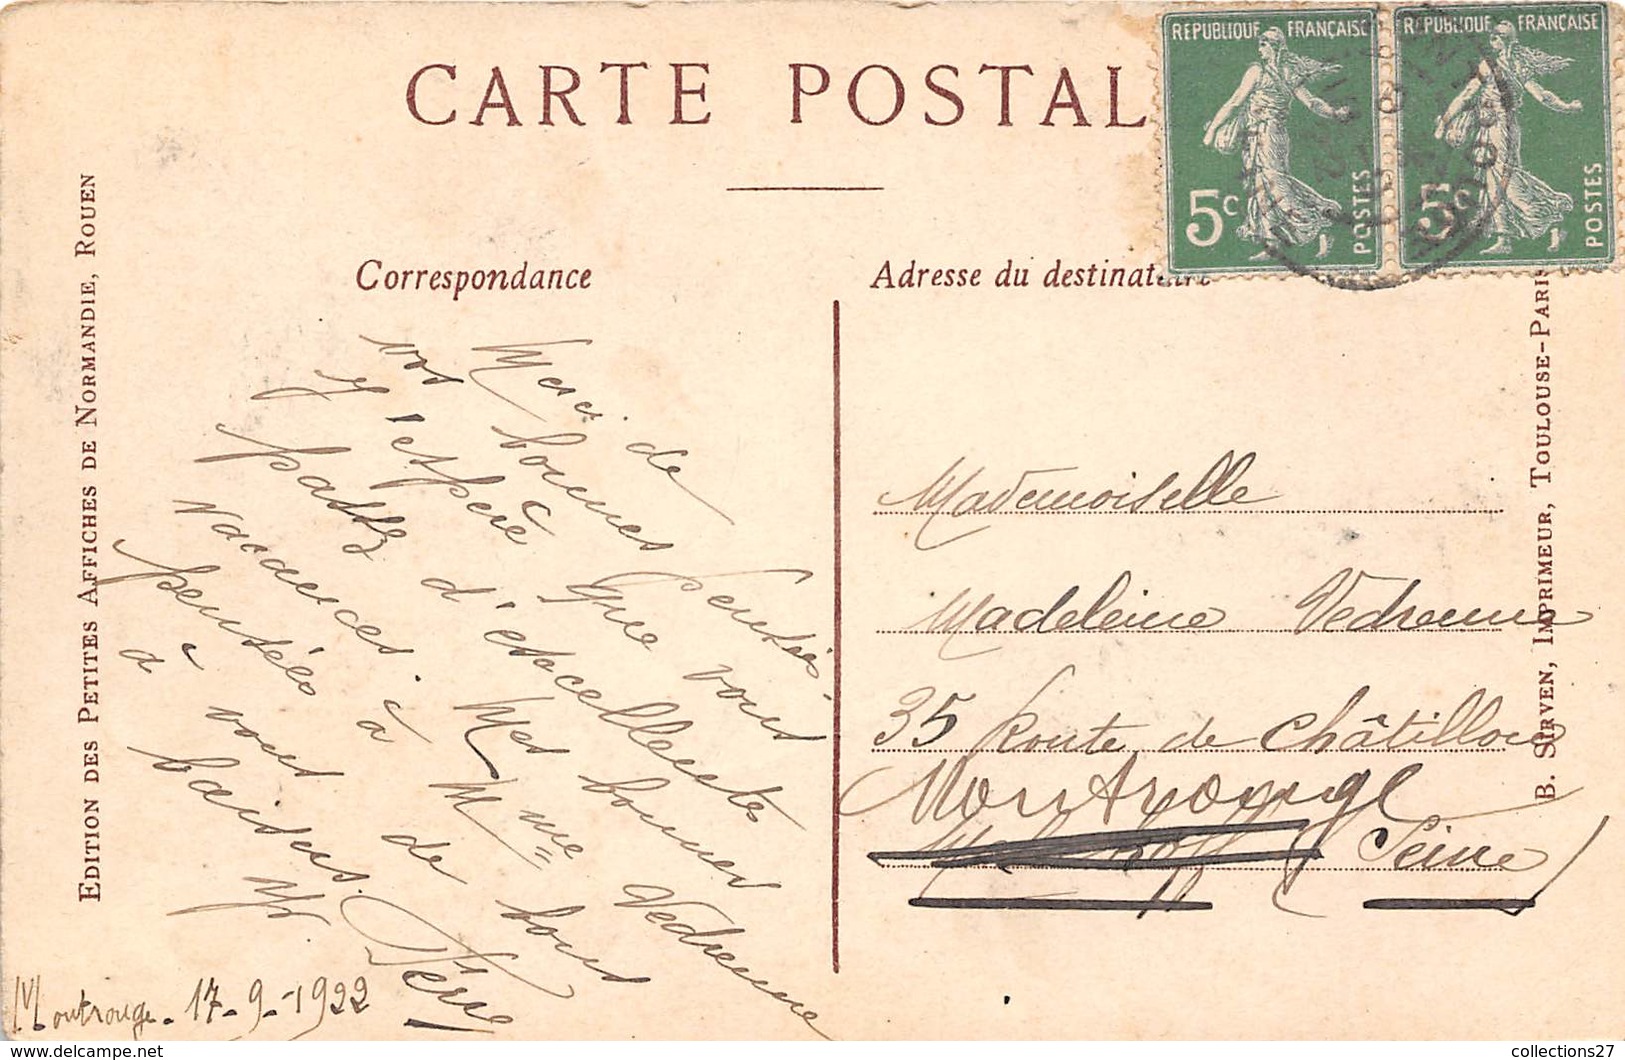 CARTE POSTAL
REPUBLIQUE FRANÇAISE
5c
POSTES
REPUBLIQUE FRANÇAISE
5c
POSTES
Correspondance
Adresse du destinataire
EDITION DES PETITES AFFICHES DE NORMANDIE, ROUEN
B. SIRVEN, IMPRIMEUR, TOULOUSE-PARIS
Merci de
vos bonnes pensées.
J'espère que vous
passez d'excellentes
vacances. Mes bonnes
pensées à Mme Vedrenne
à vous de bons
baisers.
Montrouge. 17-9-1922
Mademoiselle
Madeleine Vedrenne
35 Route de Châtillon
Montrouge
(Seine)
collections27